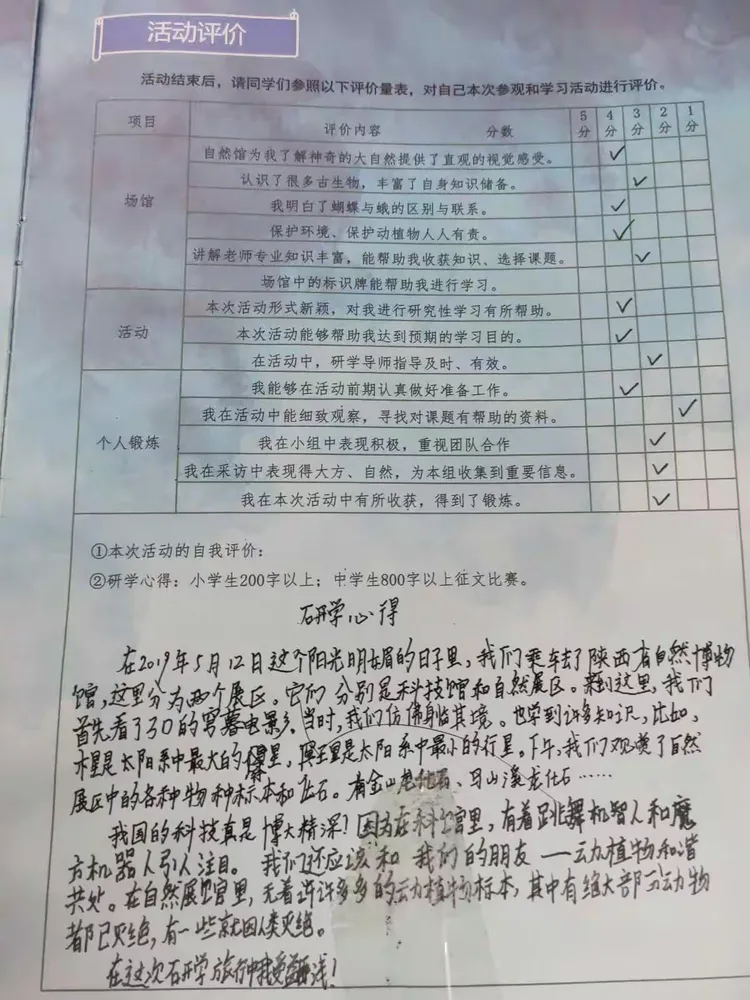 活动评价
活动结束后，请同学们参照以下评价量表，对自己本次参观和学习活动进行评价。
项目 评价内容 分数 5分 4分 3分 2分 1分
场馆
自然馆为我了解神奇的大自然提供了直观的视觉感受。 ✓
认识了很多古生物，丰富了自身知识储备。 ✓
我明白了蝴蝶与蛾的区别与联系。 ✓
保护环境、保护动植物人人有责。 ✓
讲解老师专业知识丰富，能帮助我收获知识、选择课题。 ✓
场馆中的标识牌能帮助我进行学习。
活动
本次活动形式新颖，对我进行研究性学习有所帮助。 ✓
本次活动能够帮助我达到预期的学习目的。 ✓
在活动中，研学导师指导及时、有效。 ✓
个人锻炼
我能够在活动前期认真做好准备工作。 ✓
我在活动中能细致观察，寻找对课题有帮助的资料。 ✓
我在小组中表现积极，重视团队合作 ✓
我在采访中表现得大方、自然，为本组收集到重要信息。 ✓
我在本次活动中有所收获，得到了锻炼。 ✓
①本次活动的自我评价：
②研学心得：小学生200字以上；中学生800字以上征文比赛。
研学心得
在2019年5月12日这个阳光明媚的日子里，我们乘车去了陕西省自然博物
馆，这里分为两个展区。它们分别是科技馆和自然展区。来到这里，我们
首先看了3D的穹幕电影，当时，我们仿佛身临其境。也学到许多知识，比如，
木星是太阳系中最大的行星，星是太阳系中最小的行星。下午，我们观赏了自然
展区中的各种物种标本和化石。有金山龙化石、马门溪龙化石……
我国的科技真是博大精深！因为在科馆里，有着跳舞机智人和魔
方机器人引人注目。我们还应该和我们的朋友——动植物和谐
共处。在自然展馆里，无着许许多多的动植物标本，其中有绝大部分动物
都已灭绝，有一些就因人类灭绝。
在这次研学旅行中我受益匪浅！